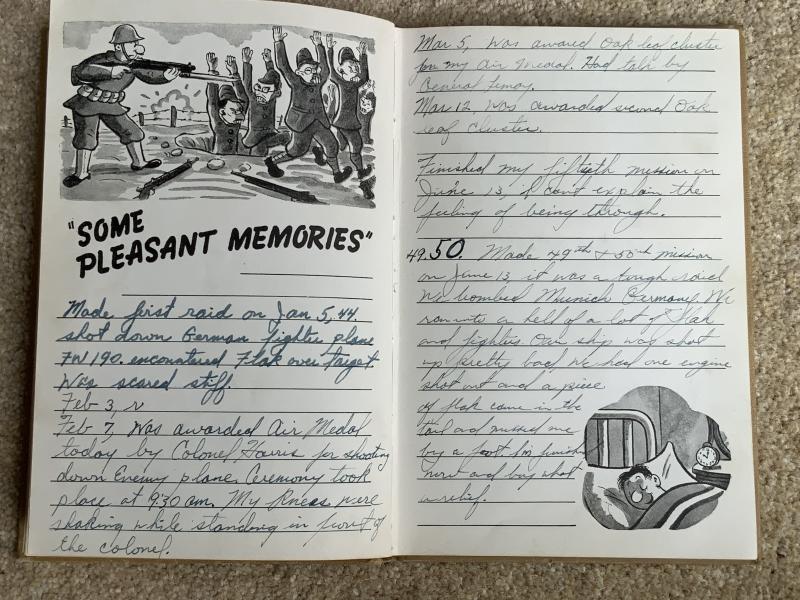 "SOME
PLEASANT MEMORIES"
Made first raid on Jan 5, 44.
shot down German fighter plane
FW 190. encountered Flak over target
Was scared stiff.
Feb 3, r
Feb 7, was awarded Air Medal
today by Colonel Harris for shooting
down Enemy plane. Ceremony took
place at 930 am. My knees were
shaking while standing in front of
the colonel.
Mar 5, was awared Oak leaf cluster
for my Air Medal. Had talk by
General
Mar 12, was awarded second Oak
leaf cluster.
Finished my fiftieth mission on
June 13, I can't explain the
feeling of being through.
49. 50. Made 49th + 50th mission
on June 13, it was a tough raid
We bombed Munich Germany. We
ran into a hell of a lot of flak
and fighters. Our ship was shot
up pretty bad, we had one engine
shot out and a piece
of flak came in the
tail and missed me
by a foot. I'm finish
now and boy what
a relief.